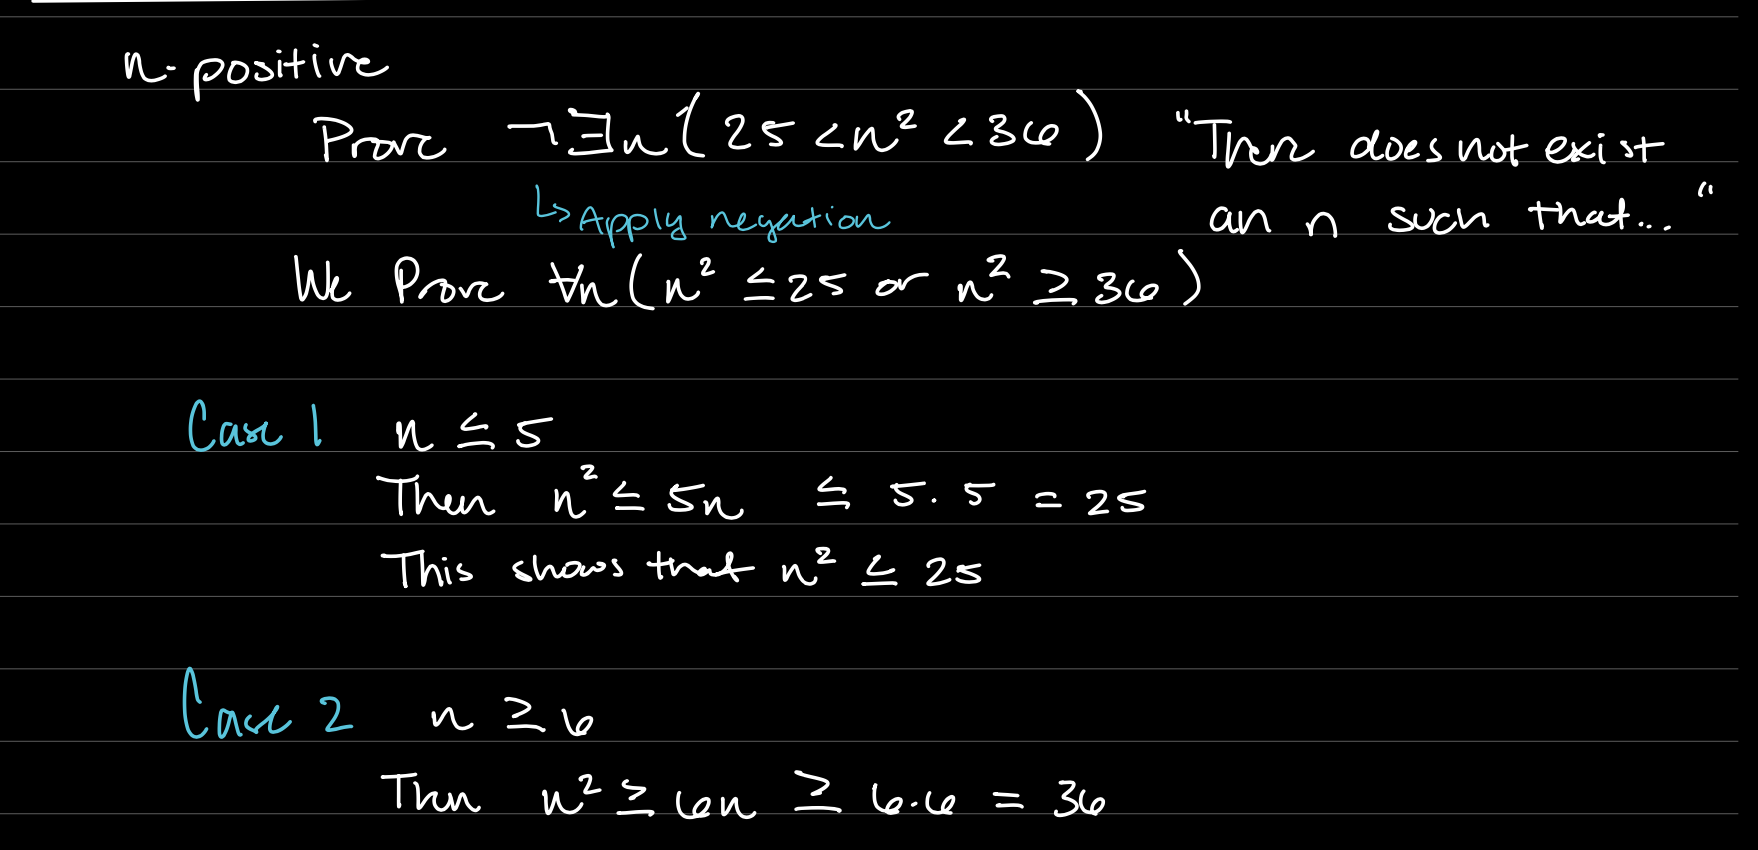 n-positive
Prove ¬∃n(25<n²<36) "There does not exist
↳ Apply negation an n such that..."
We Prove ∀n(n² ≤ 25 or n² ≥ 36)
Case 1 n ≤ 5
Then n² ≤ 5n ≤ 5·5 = 25
This shows that n² ≤ 25
Case 2 n ≥ 6
Then n² ≥ 6n ≥ 6·6 = 36